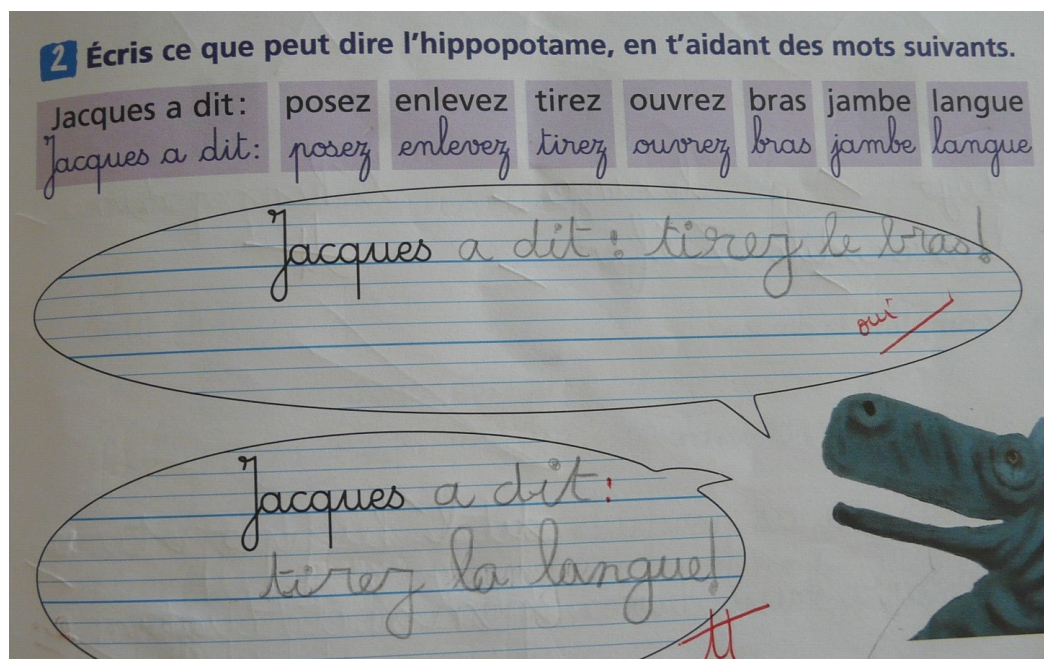 2 Écris ce que peut dire l'hippopotame, en t'aidant des mots suivants.
Jacques a dit : posez enlevez tirez ouvrez bras jambe langue
Jacques a dit : posez enlevez tirez ouvrez bras jambe langue
Jacques a dit : tirez le bras!
oui
Jacques a dit :
tirez la langue!